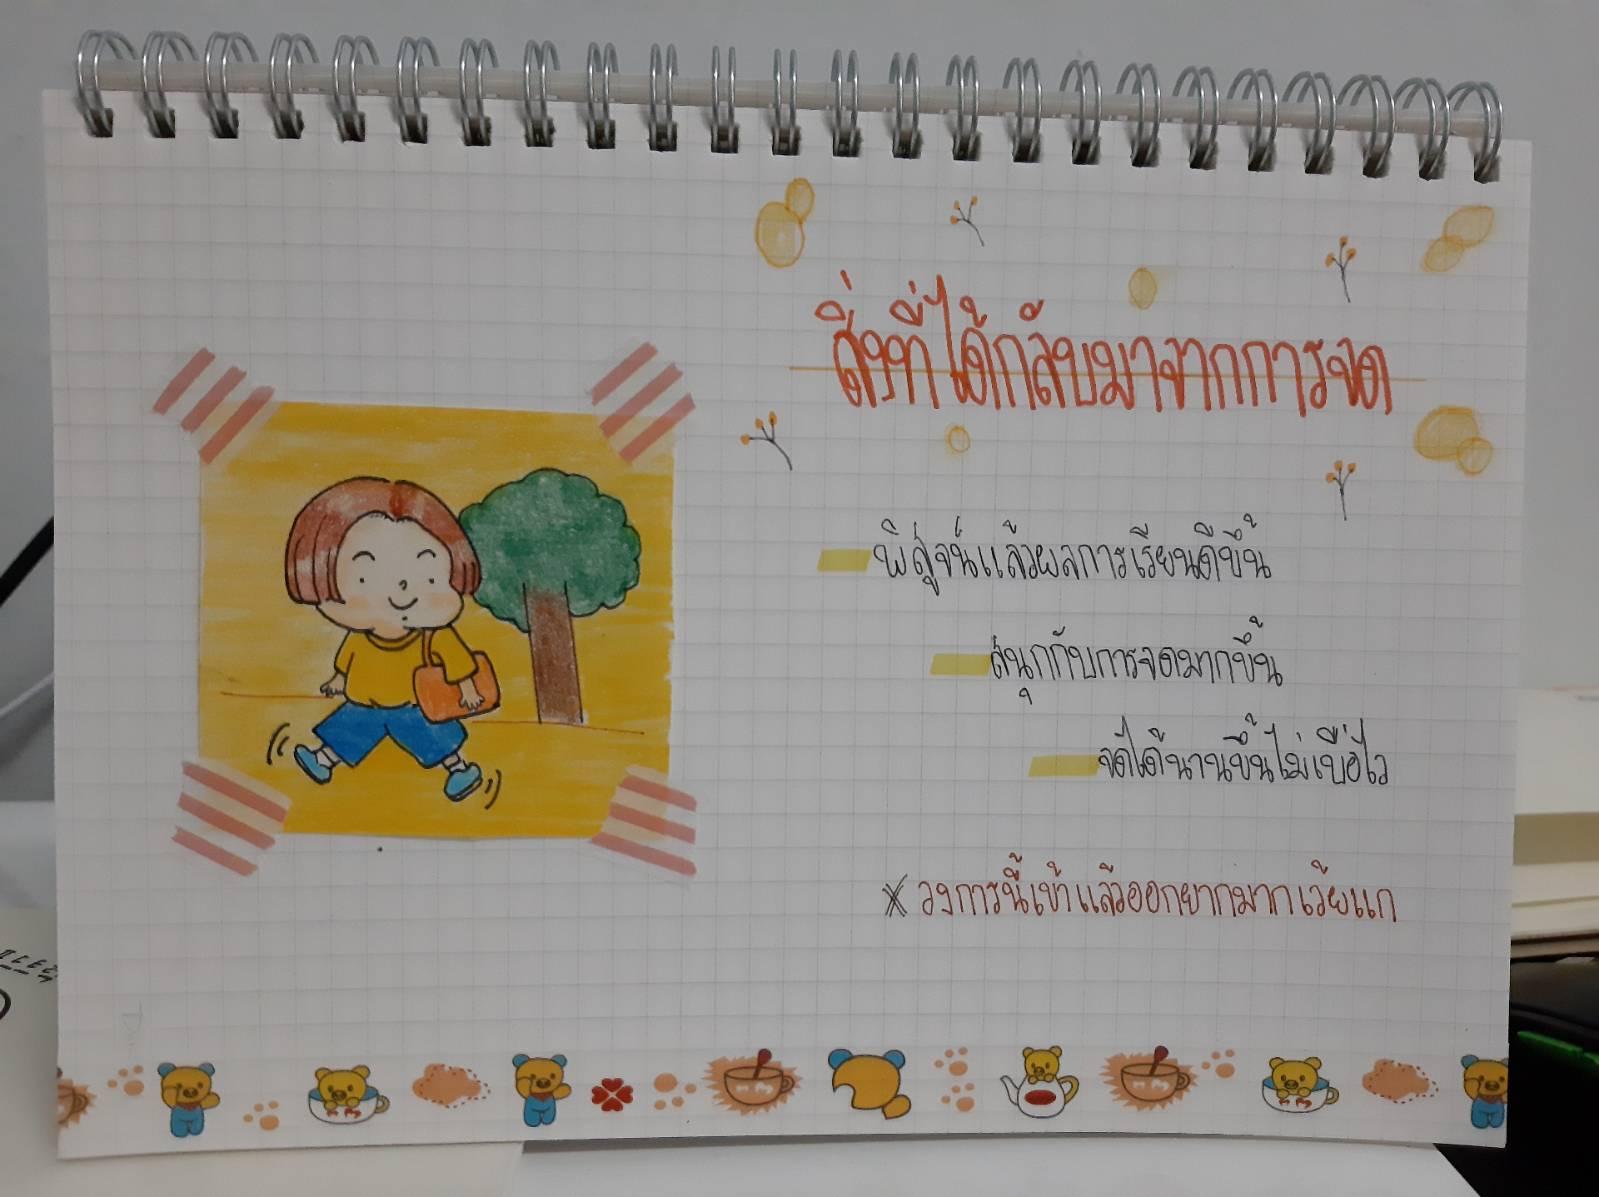 สิ่งที่ได้กลับมาจากการจด
พิสูจน์แล้วผลการเรียนดีขึ้น
สนุกกับการจดมากขึ้น
จดได้นานขึ้นไม่เบื่อไว
* วงการนี้เข้าแล้วออกยากมากเว้ยแก